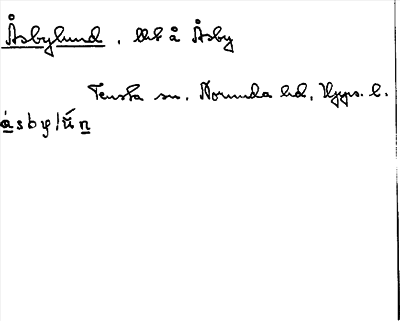 Åsbylund, llht å Åsby
Tensta sn, Norunda hd, Upps. l.
åsby/ú̄n